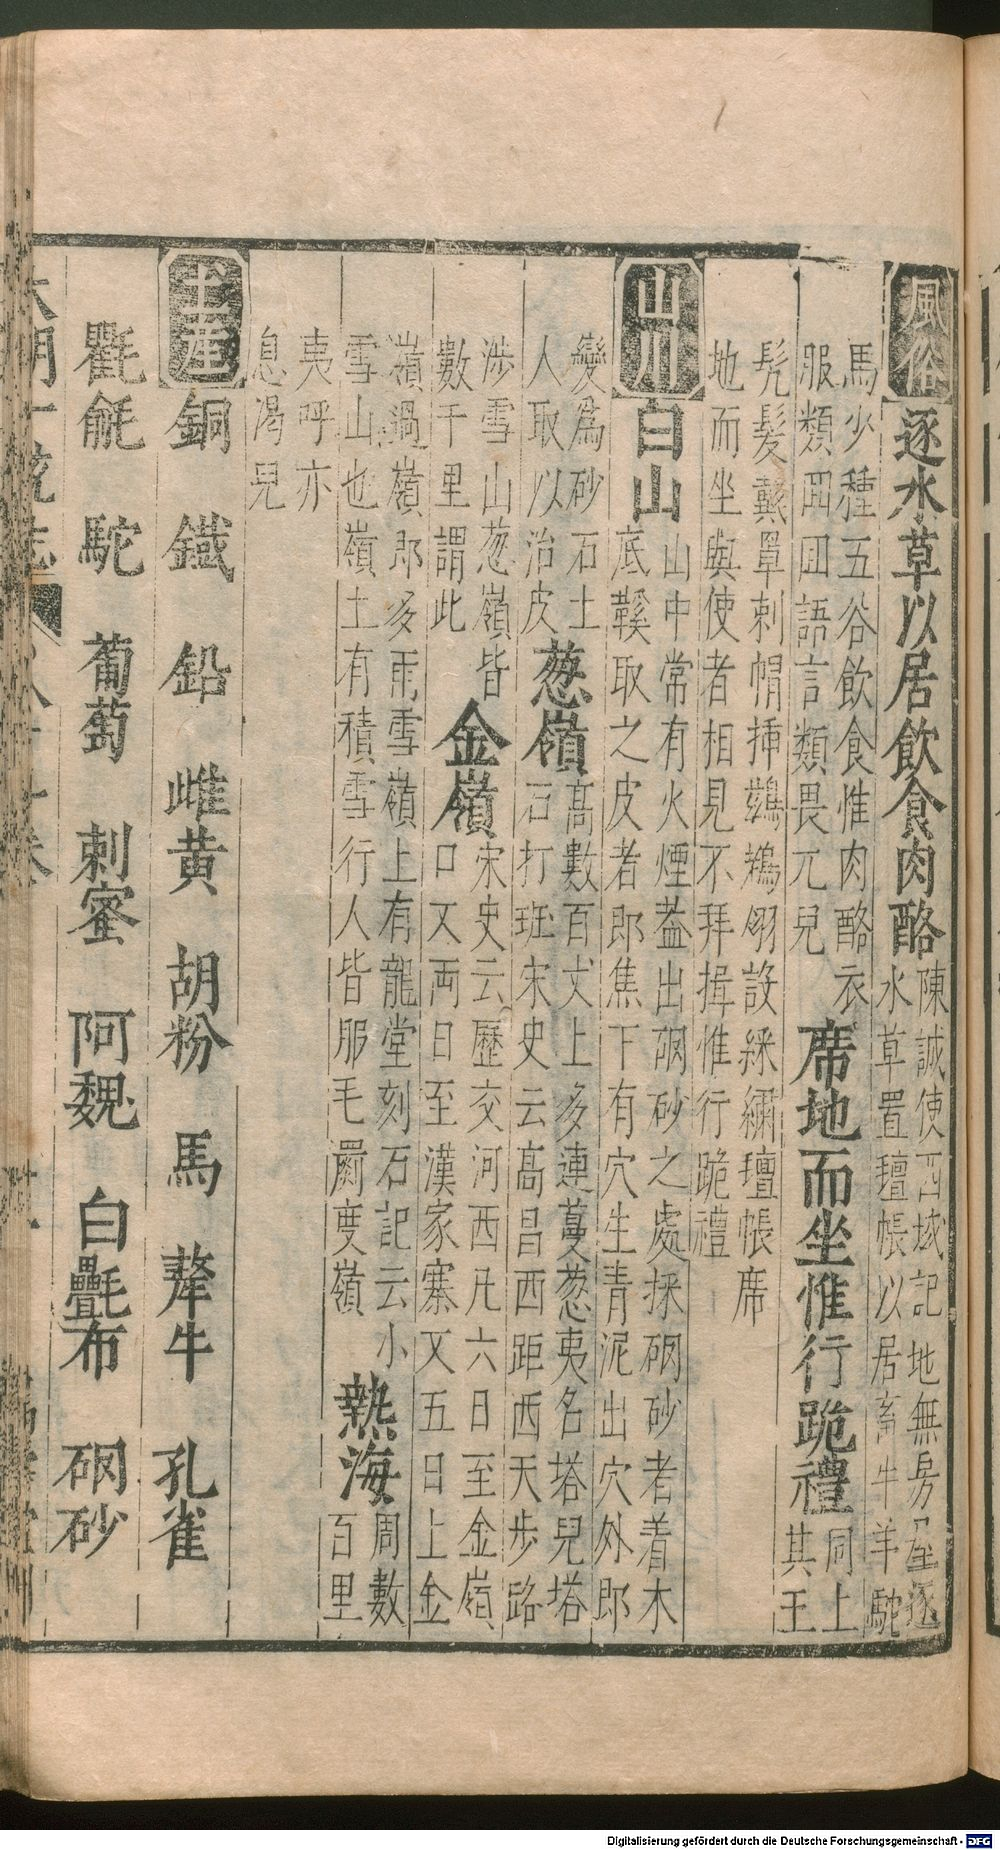 風俗 逐水草以居飲食肉酪 陳誠使西域記地無房屋逐
水草置氊帳以居畜牛羊駝
馬少種五谷飲食惟肉酪衣
服類回回語言類畏兀兒 席地而坐惟行跪禮 同上
其王
髡髮戴罩剌帽揷鷀鶿翎設綵繡氊帳席
地而坐與使者相見不拜揖惟行跪禮
山川 白山 山中常有火煙葢出硇砂之處採硇砂者着木
底鞵取之皮者即焦下有穴生青泥出穴外即
變爲砂石土
人取以治皮 葱嶺 髙數百丈上多連蔓葱夷名塔兒塔
石打班宋史云髙昌西距西天步路
涉雪山葱嶺皆
數千里謂此 金嶺 宋史云歷交河西凡六日至金嶺
口又両日至漢家寨又五日上金
嶺過嶺即多雨雪嶺上有龍堂刻石記云小
雪山也嶺土有積雪行人皆服毛罽度嶺 熱海 周數
百里
夷呼亦
息渴兒
土産 銅 鐵 鉛 雌黄 胡粉 馬 犛牛 孔雀
氍毹 駝 葡萄 刺蜜 阿魏 白㲲布 硇砂
大明一統志 卷
Digitalisierung gefördert durch die Deutsche Forschungsgemeinschaft - DFG